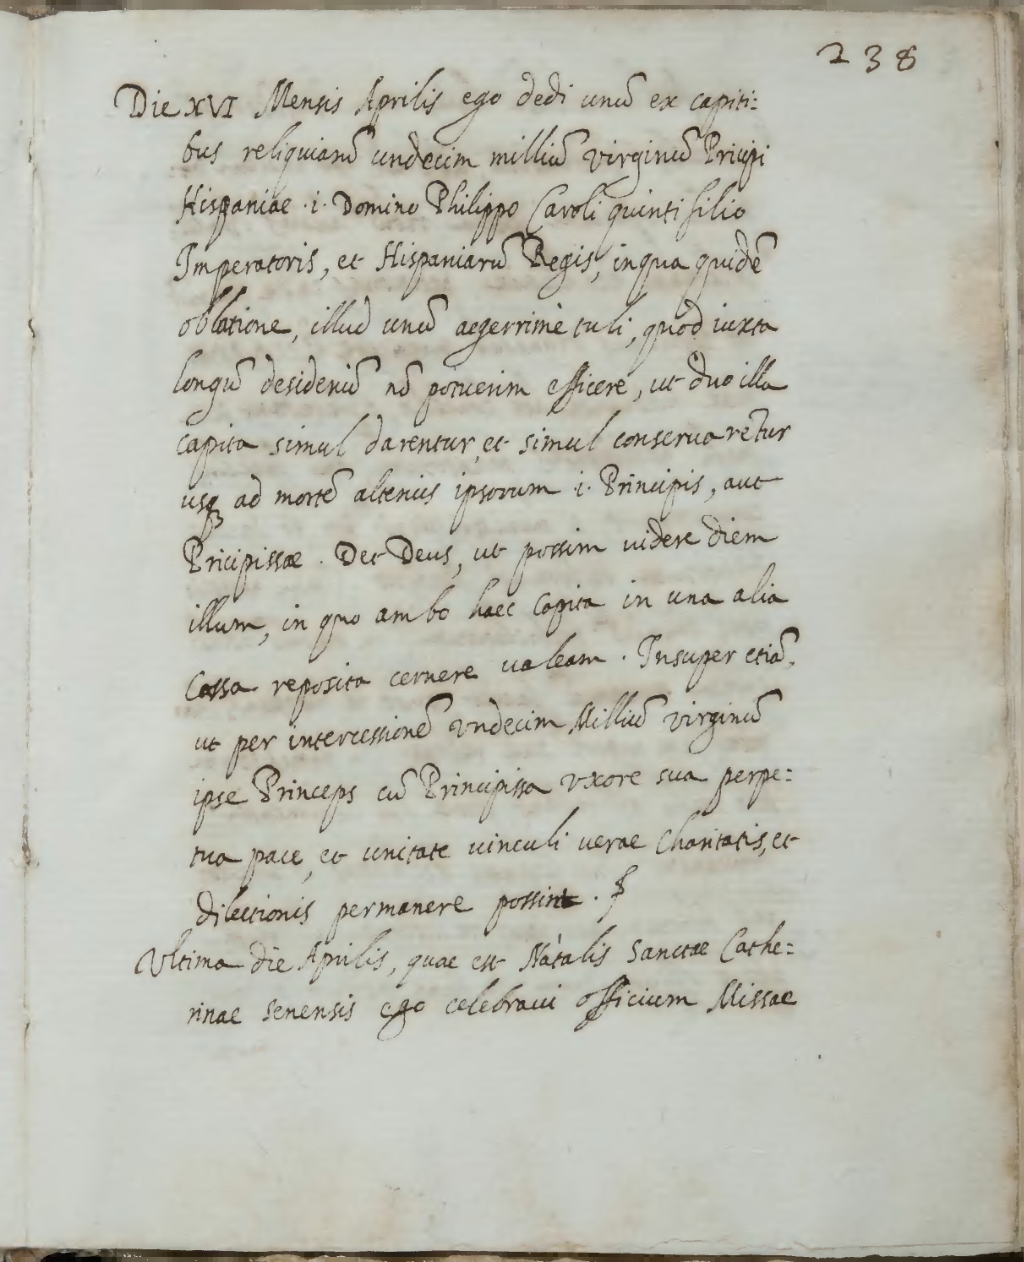 238
Die XVI Mensis Aprilis ego dedi unū ex capiti:
bus reliquiarū undecim milliū virginū Pricipi
Hispaniae .i. Domino Philippo Caroli quinti filio
Imperatoris, et Hispaniarū Regis, in qua quidē
oblatione, illud unū aegerrimè tuli, quod iuxta
longū desideriū nō potuerim efficere, ut duo illa
capita simul darentur, et simul conservarētur
usq₃ ad mortē alterius ipsorum .i. Principis, aut
Pricipissae. Det Deus, ut possim videre diem
illum, in quo ambo haec Capita in una alia
Cassa reposita cernere valeam. Insuper etiā,
ut per intercessionē Vndecim Milliū virginū
ipse Princeps cū Principissa vxore sua perpe:
tua pace, et unitate vinculi verae Charitatis, et
dilectionis permanere possint.
Vltima die Aprilis, quae est Natàlis Sanctae Cathe:
rinae Senensis ego celebravi officium Missae